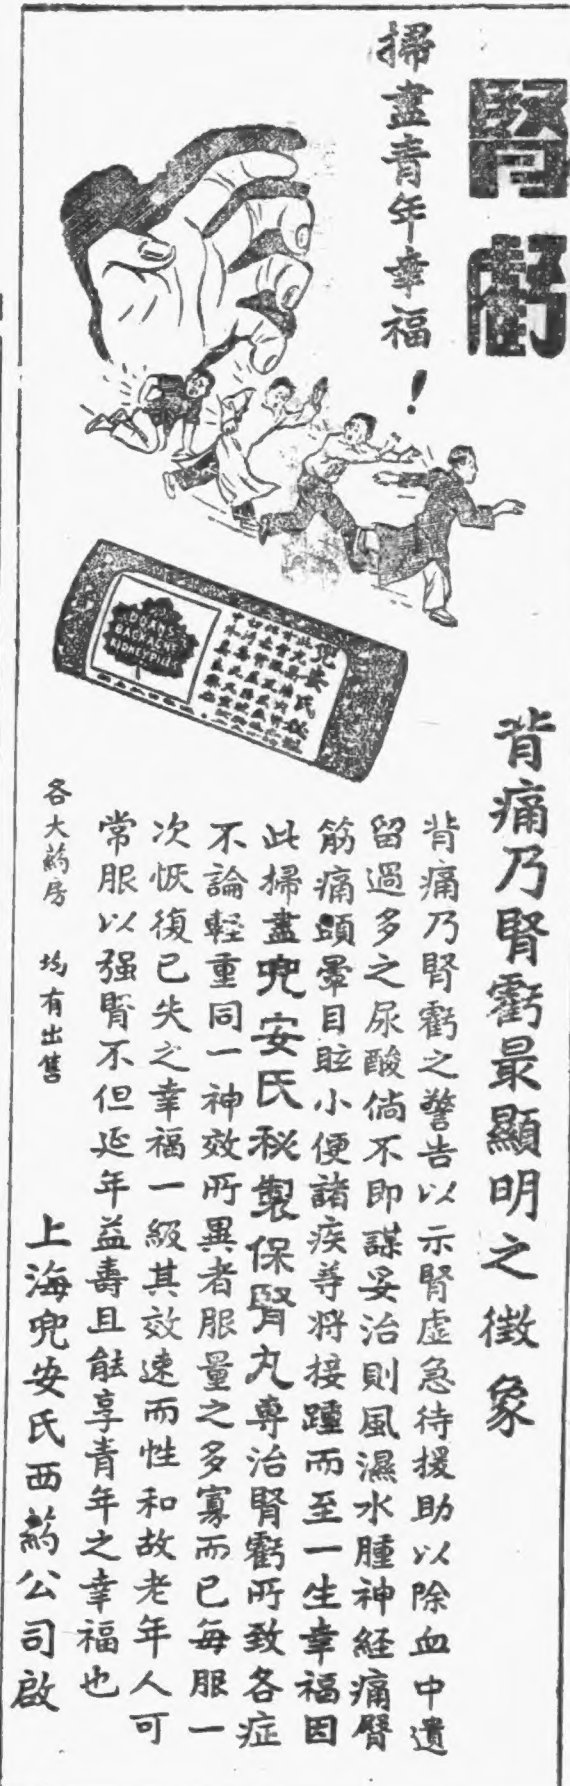 腎虧
掃盡青年幸福！
DOANS
BACKACHE
KIDNEY PILLS
兜安氏秘製
背痛乃腎虧最顯明之徵象
背痛乃腎虧之警告以示腎虛急待援助以除血中遺
留過多之尿酸倘不即謀妥治則風濕水腫神経痛腎
筋痛頭暈目眩小便諸疾等將接踵而至一生幸福因
此掃盡兜安氏秘製保腎丸專治腎虧所致各症
不論輕重同一神效所異者服量之多寡而已每服一
次恢復已失之幸福一級其效速而性和故老年人可
常服以强腎不但延年益壽且能享青年之幸福也
各大葯房 均有出售
上海兜安氏西葯公司啟